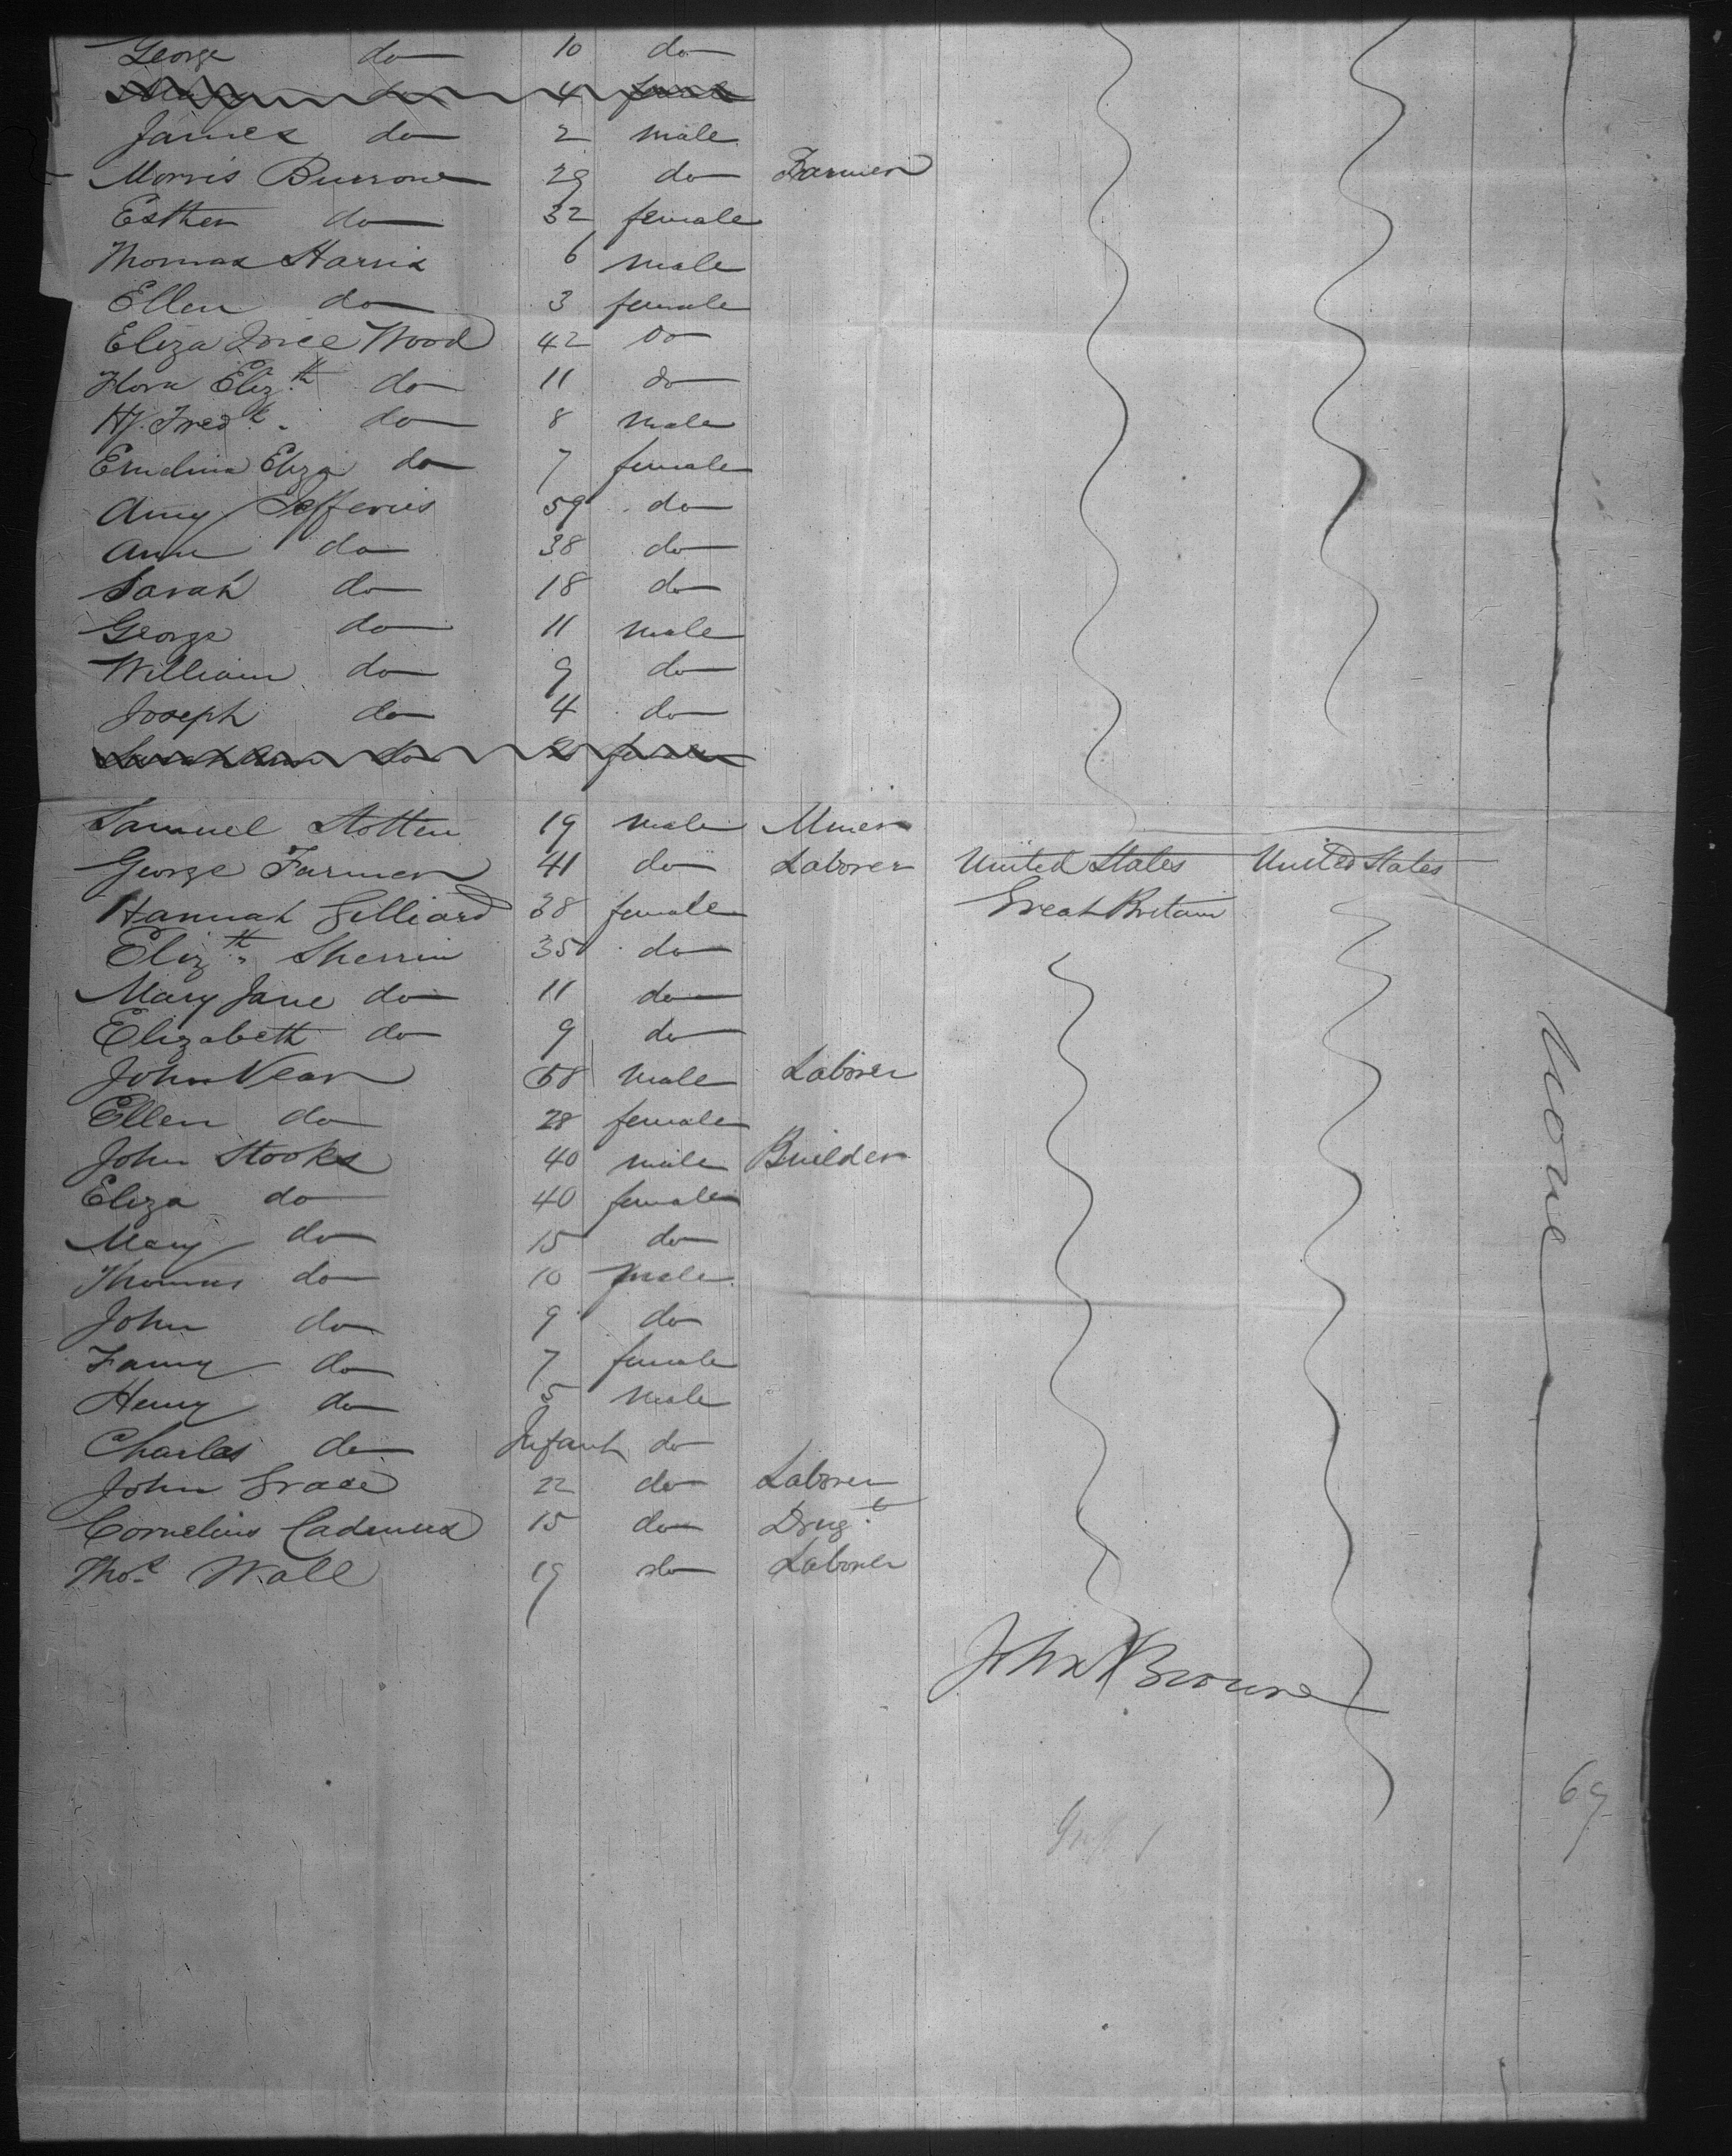 George do 10 do
4 female
James do 2 male
Morris Burrows 29 do Farmer
Esther do 32 female
Thomas Harris 6 male
Ellen do 3 female
Eliza Wood 42 do
Flora Eliz.th do 11 do
Hy. Fred.k do 8 male
Emelina Eliza do 7 female
Amy Jefferies 59 do
Ann do 38 do
Sarah do 18 do
George do 11 male
William do 9 do
Joseph do 4 do
Sarah Ann do female
Samuel Stotten 19 male Miner
George Farmer 41 do Laborer United States United States
Hannah Gilliard 38 female Great Britain
Eliz.th Sherrin 35 do
Mary Jane do 11 do
Elizabeth do 9 do
John Vean 58 male Laborer
Ellen do 28 female
John Stooks 40 male Builder
Eliza do 40 female
Mary do 15 do
Thomas do 10 male
John do 9 do
Fanny do 7 female
Henry do 5 male
Charles do Infant do
John Grace 22 do Laborer
Cornelius Cadmus 15 do Drug.t
Thos. Wall 19 do Laborer
None
John Browne
69